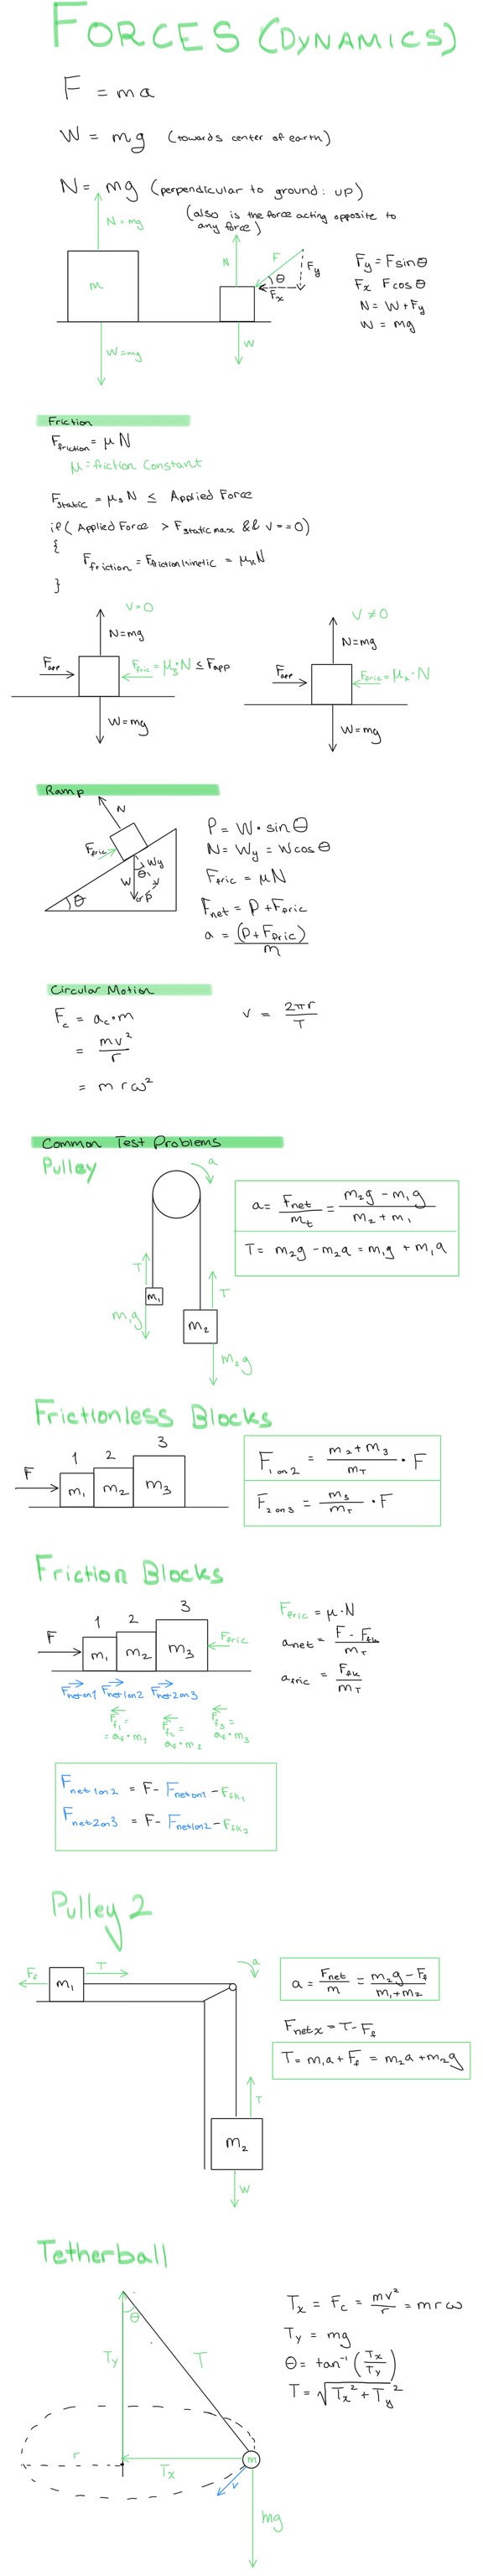 FORCES (DYNAMICS)
F = ma
W = mg (towards center of earth)
N = mg (perpendicular to ground: up)
(also is the force acting opposite to
any force)
N = mg
m
W = mg
N
F
θ
Fy
Fx
W
Fy = F sin θ
Fx F cos θ
N = W + Fy
W = mg
Friction
Ffriction = μN
μ = friction constant
Fstatic = μsN ≤ Applied Force
if (Applied Force > Fstaticmax && v == 0)
{
Ffriction = Ffrictionkinetic = μkN
}
V = 0
N = mg
Fapp
Ffric = μs·N ≤ Fapp
W = mg
V ≠ 0
N = mg
Fapp
Ffric = μk·N
W = mg
Ramp
N
Ffric
Wy
θ
W
P
θ
P = W · sin θ
N = Wy = W cos θ
Ffric = μN
Fnet = P + Ffric
a = (P + Ffric) / m
Circular Motion
Fc = ac·m
= mv² / r
= m r ω²
v = 2πr / T
Common Test Problems
Pulley
a
T
T
m₁
m₁g
m₂
m₂g
a = Fnet / mt = (m₂g − m₁g) / (m₂ + m₁)
T = m₂g − m₂a = m₁g + m₁a
Frictionless Blocks
F
1 2 3
m₁ m₂ m₃
F1 on 2 = (m₂ + m₃) / mT · F
F2 on 3 = m₃ / mT · F
Friction Blocks
F
1 2 3
m₁ m₂ m₃
Ffric
Fneton1 Fnet1on2 Fnet2on3
Ff₁ = = af·m₁
Ff₂ = af·m₂
Ff₃ = af·m₃
Ffric = μ·N
anet = (F − Ffk) / mT
afric = Ffk / mT
Fnet1on2 = F − Fneton1 − Ffk₁
Fnet2on3 = F − Fnet1on2 − Ffk₂
Pulley 2
Ff
m₁
T
a
T
m₂
W
a = Fnet / m = (m₂g − Ff) / (m₁ + m₂)
Fnetx = T − Ff
T = m₁a + Ff = m₂a + m₂g
Tetherball
θ
Ty
T
r
Tx
m
v
mg
Tx = Fc = mv² / r = m r ω
Ty = mg
θ = tan⁻¹ (Tx / Ty)
T = √(Tx² + Ty²)